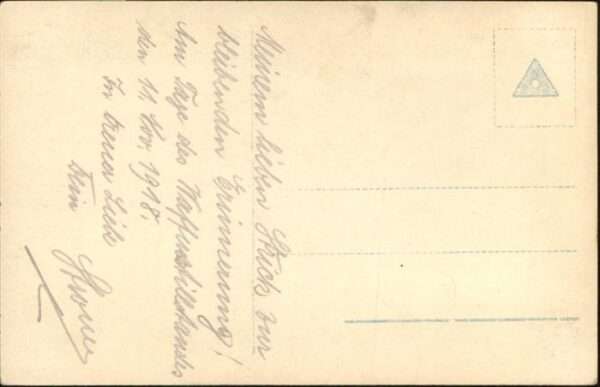 Meinem lieben Stück zur
bleibenden Erinnerung!
Am Tage des Waffenstillstandes
den 11. Nov. 1918.
In treuer Liebe
Dein